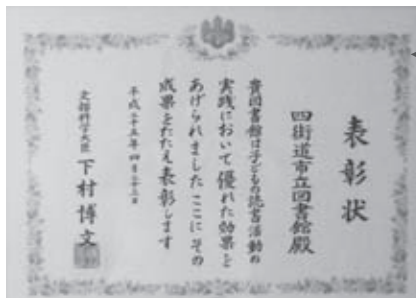 表彰状
四街道市立図書館殿
貴図書館は子どもの読書活動の
実践において優れた効果を
あげられましたここにその
成果をたたえ表彰します
平成二十五年四月二十三日
文部科学大臣 下村博文